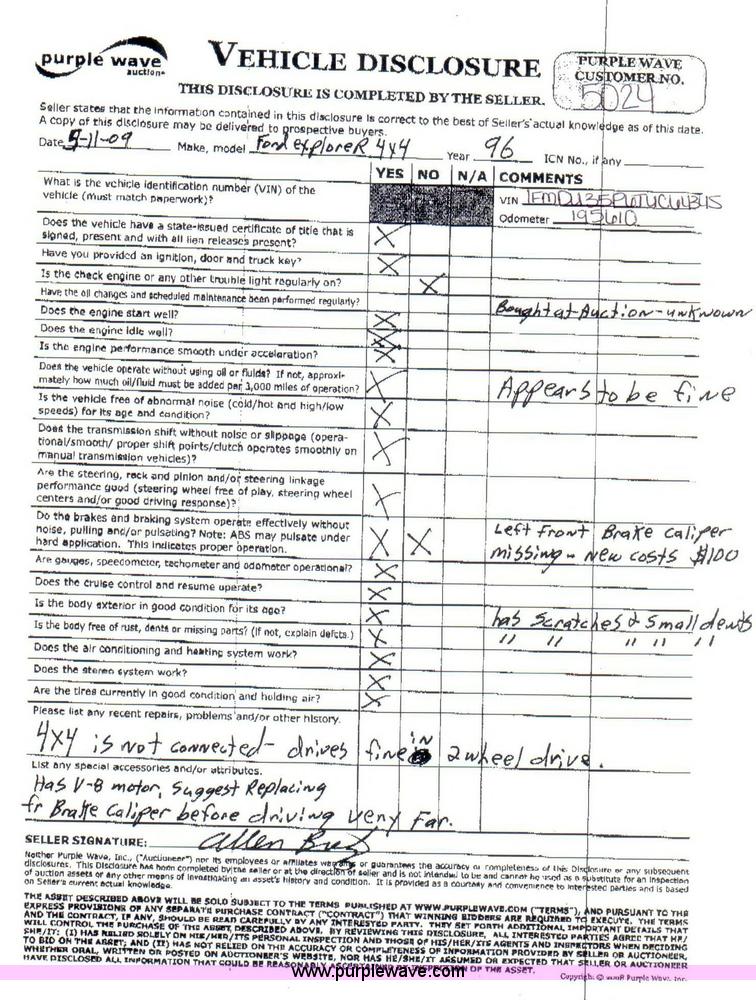 purple wave
auction®
VEHICLE DISCLOSURE
PURPLE WAVE
CUSTOMER NO.
5024
THIS DISCLOSURE IS COMPLETED BY THE SELLER.
Seller states that the information contained in this disclosure is correct to the best of Seller's actual knowledge as of this date.
A copy of this disclosure may be delivered to prospective buyers.
Date 5-11-09 Make, model Ford exploreR 4x4 Year 96 ICN No., if any
YES NO N/A COMMENTS
What is the vehicle identification number (VIN) of the
vehicle (Must match paperwork)?
VIN
Odometer 195610
Does the vehicle have a state-issued certificate of title that is
signed, present and with all lien releases present? X
Have you provided an ignition, door and truck key? X
Is the check engine or any other trouble light regularly on? X
Have the oil changes and scheduled maintenance been performed regularly? Bought at Auction - unknown
Does the engine start well? X
Does the engine idle well? X
Is the engine performance smooth under acceleration? X
Does the vehicle operate without using oil or fluids? If not, approxi-
mately how much oil/fluid must be added per 3,000 miles of operation? X Appears to be fine
Is the vehicle free of abnormal noise (cold/hot and high/low
speeds) for its age and condition? X
Does the transmission shift without noise or slippage (opera-
tional/smooth/ proper shift points/clutch operates smoothly on
manual transmission vehicles)? X
Are the steering, rack and pinion and/or steering linkage
performance good (steering wheel free of play, steering wheel
centers and/or good driving response)? X
Do the brakes and braking system operate effectively without
noise, pulling and/or pulsating? Note: ABS may pulsate under
hard application. This indicates proper operation. X X
Left front Brake caliper
missing - new costs $100
Are gauges, speedometer, tachometer and odometer operational? X
Does the cruise control and resume operate? X
Is the body exterior in good condition for its age? X has scratches & small dents
Is the body free of rust, dents or missing parts? (If not, explain defects.) X " " " " "
Does the air conditioning and heating system work? X
Does the stereo system work? X
Are the tires currently in good condition and holding air? X
Please list any recent repairs, problems and/or other history.
4x4 is not connected - drives fine in 2 wheel drive.
List any special accessories and/or attributes.
Has V-8 motor, Suggest Replacing
fr Brake Caliper before driving very far.
SELLER SIGNATURE: Allen
Neither Purple Wave, Inc., ("Auctioneer") nor its employees or affiliates warrants or guarantees the accuracy or completeness of this Disclosure or any subsequent
disclosures. This Disclosure has been completed by the seller or at the direction of seller and is not intended to be and cannot be used as a substitute for an inspection
of auction assets or any other means of investigating an asset's history and condition. It is provided as a courtesy and convenience to interested parties and is based
on Seller's current actual knowledge.
THE ASSET DESCRIBED ABOVE WILL BE SOLD SUBJECT TO THE TERMS PUBLISHED AT WWW.PURPLEWAVE.COM ("TERMS"), AND PURSUANT TO THE
EXPRESS PROVISIONS OF ANY SEPARATE PURCHASE CONTRACT ("CONTRACT") THAT WINNING BIDDERS ARE REQUIRED TO EXECUTE. THE TERMS
AND THE CONTRACT, IF ANY, SHOULD BE READ CAREFULLY BY ANY INTERESTED PARTY. THEY SET FORTH ADDITIONAL IMPORTANT DETAILS THAT
WILL CONTROL THE PURCHASE OF THE ASSET DESCRIBED ABOVE. BY REVIEWING THIS DISCLOSURE, ALL INTERESTED PARTIES AGREE THAT HE/
SHE/IT: (I) HAS RELIED SOLELY ON HIS/HER/ITS PERSONAL INSPECTION AND THOSE OF HIS/HER/ITS AGENTS AND INSPECTORS WHEN DECIDING
TO BID ON THE ASSET; AND (II) HAS NOT RELIED ON THE ACCURACY OR COMPLETENESS OF INFORMATION PROVIDED BY SELLER OR AUCTIONEER,
WHETHER ORAL, WRITTEN OR POSTED ON AUCTIONEER'S WEBSITE, NOR HAS HE/SHE/IT ASSUMED OR EXPECTED THAT SELLER OR AUCTIONEER
HAVE DISCLOSED ALL INFORMATION THAT COULD BE REASONABLY INSPECTION OF THE ASSET.
Copyright © 2008 Purple Wave, Inc.
www.purplewave.com